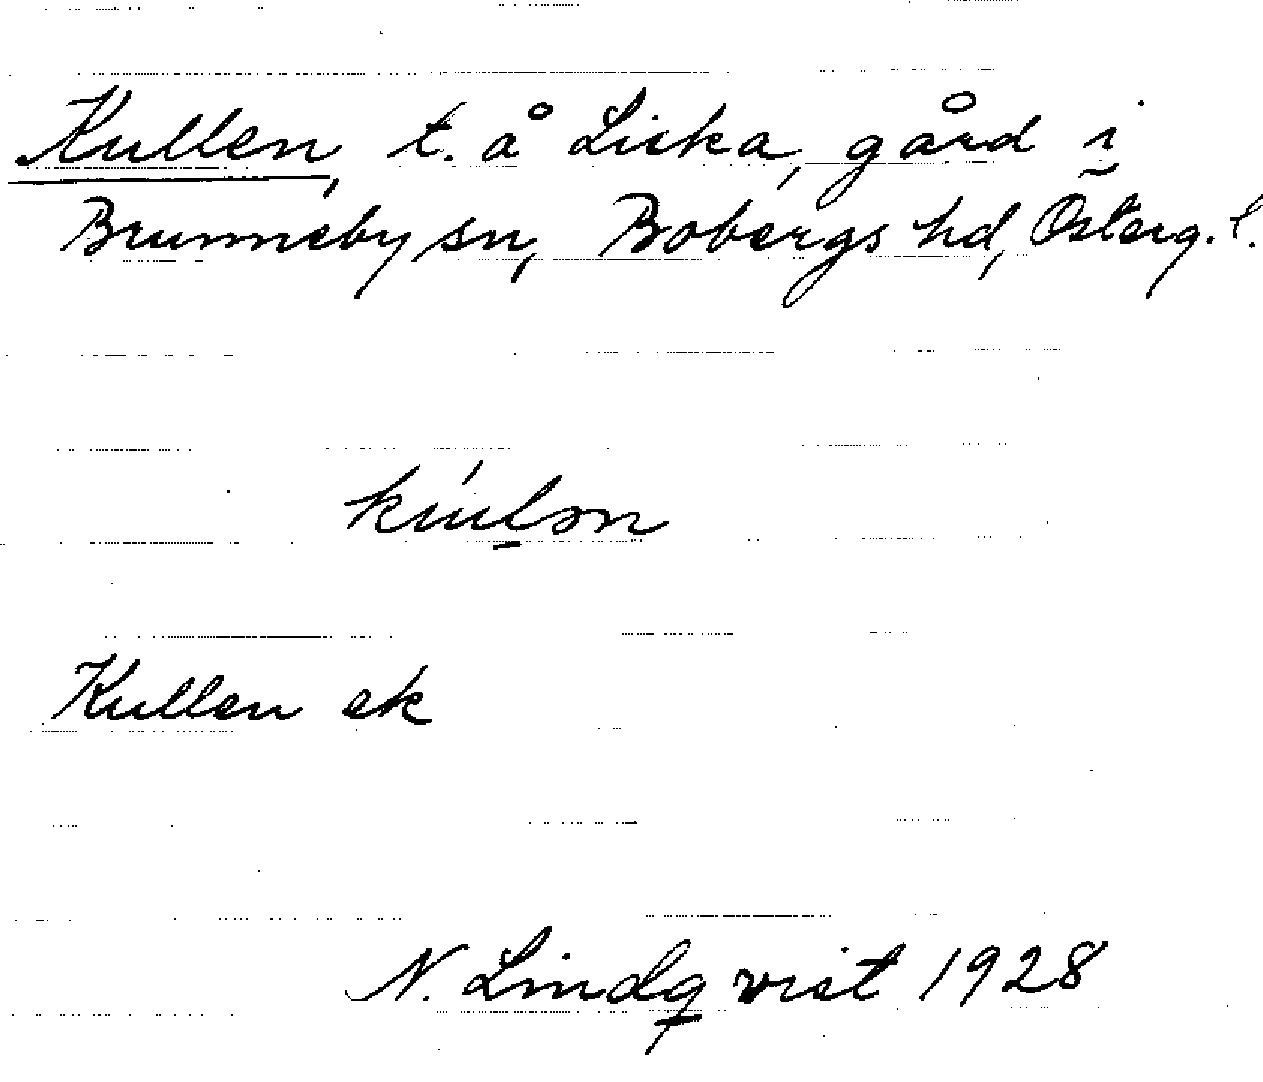 Kullen, t. å Liska, gård i
Brunneby sn, Bobergs hd, Österg. l.
Kullen ek
N. Lindqvist 1928